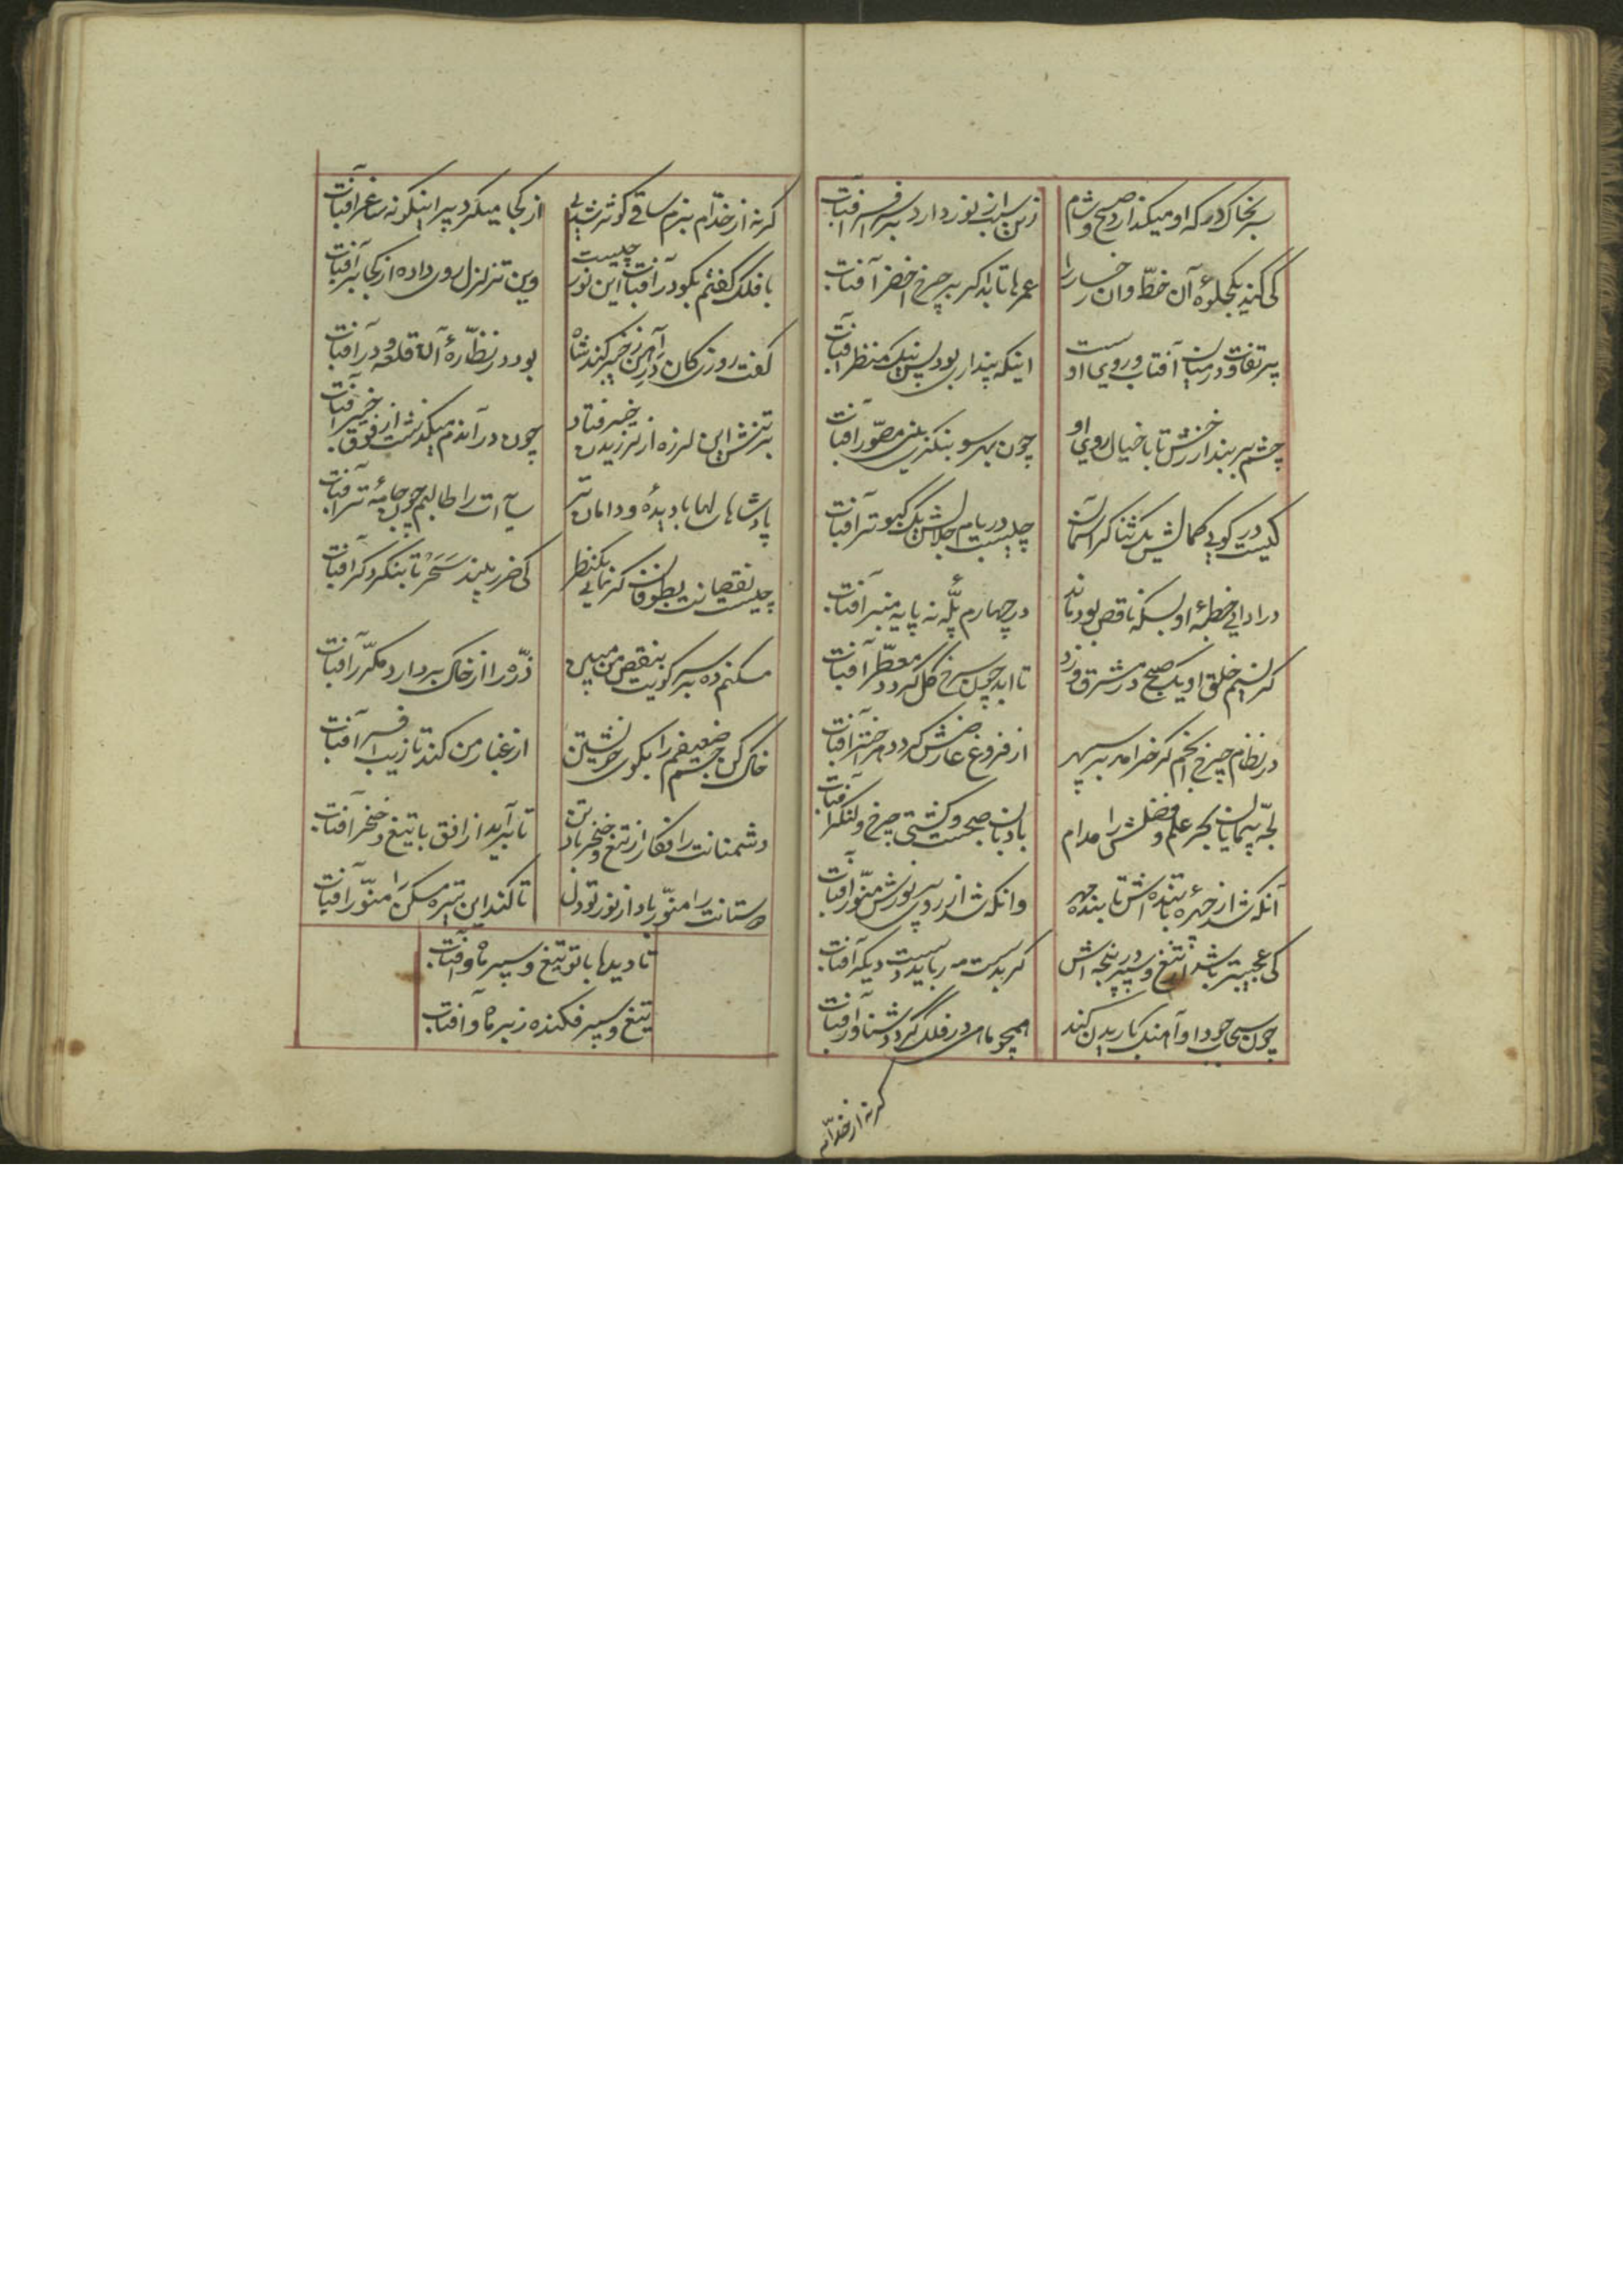 سر بخاک در که او میگذارد صبح و شام
زین سبب از نور دارد بر سر افسر آفتاب
کی کند یکجلوهٔ آن خط و آن رخسار را
عمرها تابد اگر بر چرخ اخضر آفتاب
پر تفاوت در میان آفتاب و روی اوست
اینکه پنداری بود پس نیک منظر آفتاب
چشم بر بند از رخش تا با خیال روی او
چون بهر سو بنگری بینی مصور آفتاب
کیست در کوی کمالش یک ثناگر آسمان
چیست در بام جلالش یک کبوتر آفتاب
در ادای خطبهٔ او بسکه ناقص بود ماند
در چهارم پلهٔ نه پایه منبر آفتاب
گر نسیم خلق او یک صبح در مشرق وزد
تا ابد چون سرخ گل گردد معطر آفتاب
در نظام چرخ انجم گر خرامد بر سپهر
از فروغ عارضش گردد هر اختر آفتاب
لجه پیمایان بحر علم و فضلش را مدام
بادبان صبحست و کشتی چرخ و لنگر آفتاب
آنکه شد از چهرهٔ تابنده‌اش تابنده چهر
وانکه شد از روی پر نورش منور آفتاب
کی عجیبتر باشد از تیغ و سپر در پنجه‌اش
گر بدست مه رباید دست دیگر آفتاب
چون سحاب جود او آهنگ باریدن کند
همچو ماهی در فلک گردد شناور آفتاب
گر نه از خدام
گر نه از خدام بزم ساقی کوثر شدی
از کجا میکرد پیر اینگونه ساغر آفتاب
با فلک گفتم بگو در آفتاب این نور چیست
وین تزلزل روی داده از کجا بر آفتاب
گفت روزی کان در آهن ز خیبر کند شاه
بود در نظارهٔ آن قلعه و در آفتاب
بر تنش این لرزه از لرزیدن خیبر فتاد
چون در آندم میگذشت از فوق خیبر آفتاب
پادشاها سالها با دیدهٔ و دامان تر
سایه‌ات را طالبم چون جامهٔ تر آفتاب
چیست نقصانت بطوفان گر نمایی یکنظر
کی ضرر بیند سحر تا بنگرد گر آفتاب
مسکنم ده بر سر کویت بنقص من مبین
ذره را از خاک بردارد مکرر آفتاب
خاک کن جسم ضعیفم را بکوی خویشتن
از غبار من کند تا زیب افسر آفتاب
دشمنانت را فکار از تیغ و خنجر باد تن
تا برآید از افق با تیغ و خنجر آفتاب
دوستانت را منور باد از نور تو دل
تا کند این تیره مسکن را منور آفتاب
تا دیدها با تو تیغ و سپر ماه و آفتاب
تیغ و سپر فکنده ز بر ماه و آفتاب